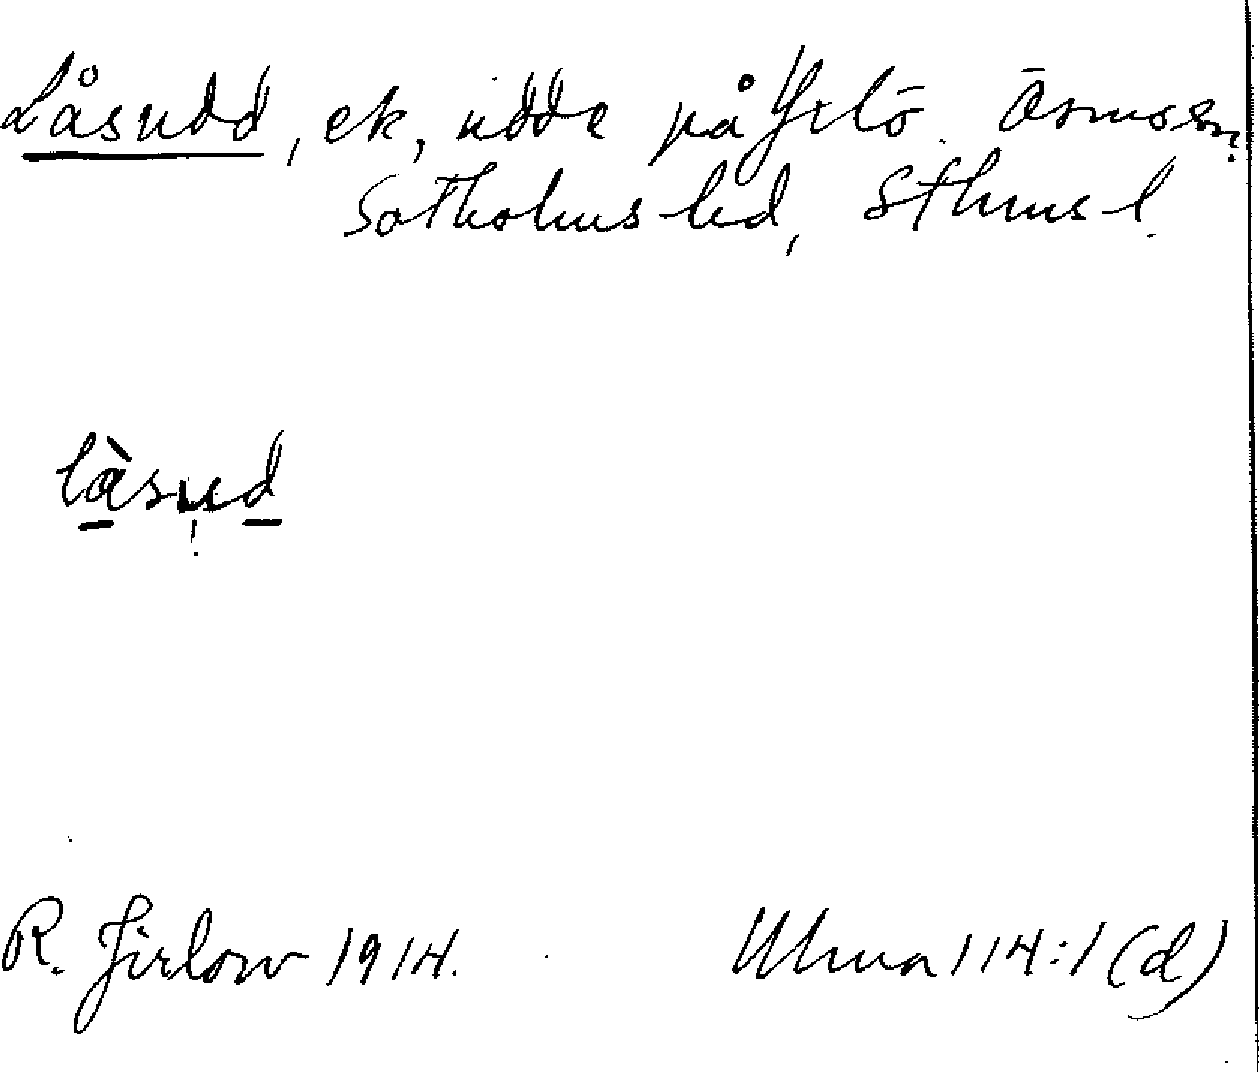 Låsudd, ek, udde på Yxlö. Ösmo sn.
Sotholms hd, Sthms l.
låsud
R. Jirlow 1914. Ulma 114:1 (d)